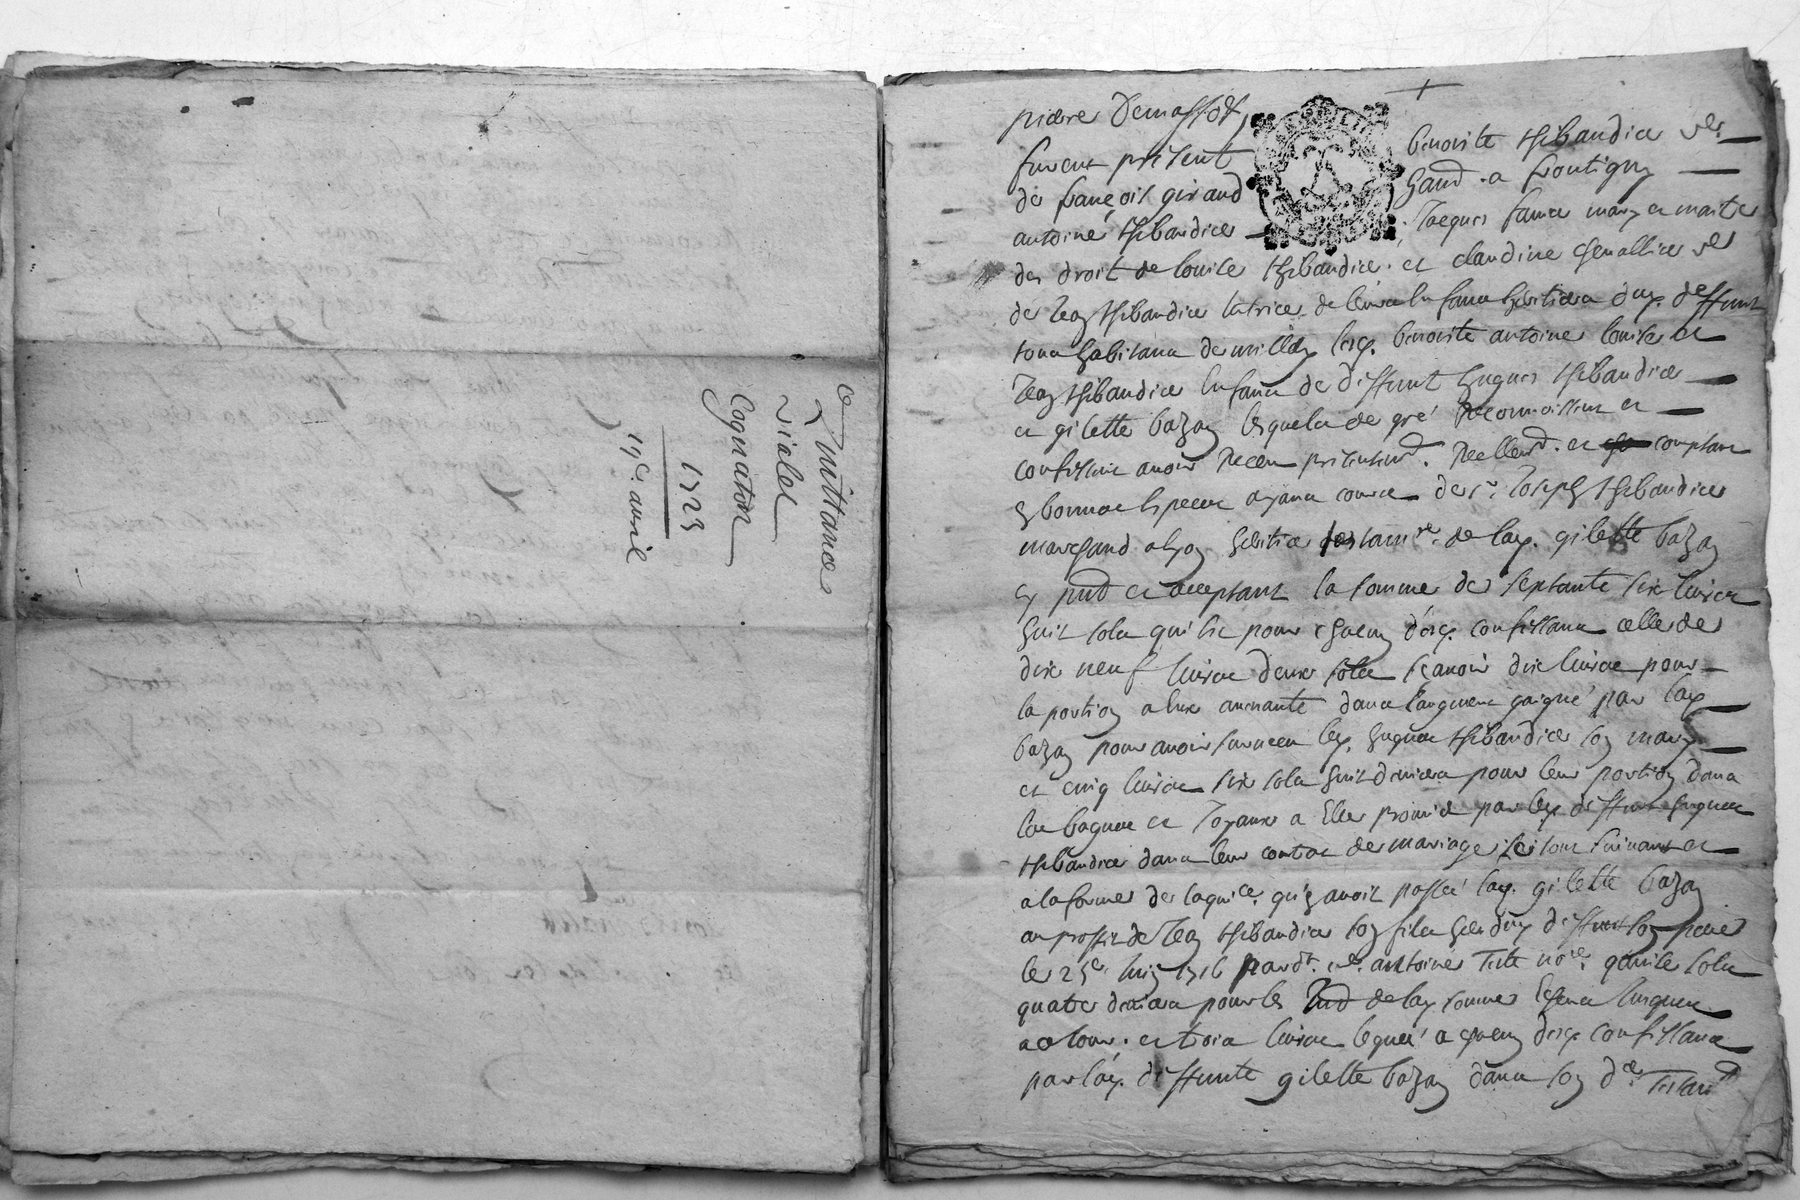 Quittance
Vialet
Cognaton
1723
19e. avril
pierre Demassot
furent present benoiste thibaudier ve.
de françois giraud hand. a frontigny
antoine thibaudier Jacques famer mary et maitre
des droit de louise thibaudier. et claudine chevallier ve
de Jean thibaudier tutrice de leurs enfans heritiers dud. deffunt
tous habitans de millery lesd. benoiste antoine louise et
Jean thibaudier enfans de deffunt hugues thibaudier
et gilette bazan lesquels de gré reconnoissent et
confessent avoir receu presentemt. reellemt. et comptant
en bonnes especes ayans cours de sr. Joseph thibaudier
marchand a lyon heritier testamre. de lad. gilette bazan
cy pnt et acceptant la somme de septante six livres
huit sols qui est pour chacun desd. confessans celle de
dix neuf livres deux sols sçavoir dix livres pour
la portion a eux arrivante dans l'augment gaigné par lad.
bazan pour avoir survecu led. hugues thibaudier son mary
et cinq livres six sols huit deniers pour leur portion dans
les bagues et joyaux a elle promis par led. deffunt hugues
thibaudier dans leur contrat de mariage le tout suivant et
a la forme de laquitce. qu'en avoit passée lad. gilette bazan
au proffit de Jean thibaudier son fils her. dud. deffunt son pere
le 25e. Juin 1716 pardt. me. antoine Teste nore. quinze sols
quatre deniers pour les Int de lad. somme Echeus Jusques
a ce jour. et trois livres legués a chacun desd. confessans
par lad. deffunte gilette bazan dans son d. Testamt